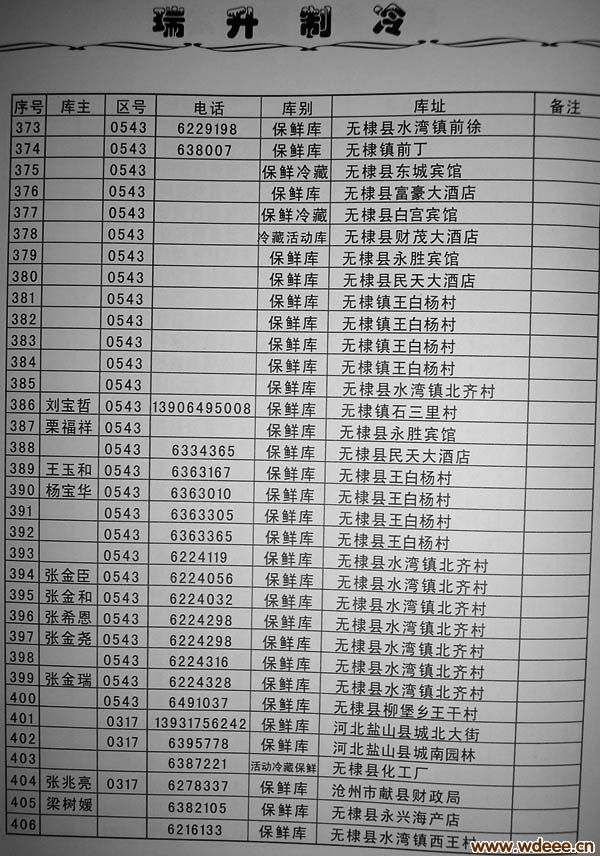 瑞升制冷
序号 库主 区号 电话 库别 库址 备注
373 0543 6229198 保鲜库 无棣县水湾镇前徐
374 0543 638007 保鲜库 无棣镇前丁
375 0543 保鲜冷藏 无棣县东城宾馆
376 0543 保鲜库 无棣县富豪大酒店
377 0543 保鲜冷藏 无棣县白宫宾馆
378 0543 冷藏活动库 无棣县财茂大酒店
379 0543 保鲜库 无棣县永胜宾馆
380 0543 保鲜库 无棣县民天大酒店
381 0543 保鲜库 无棣镇王白杨村
382 0543 保鲜库 无棣镇王白杨村
383 0543 保鲜库 无棣镇王白杨村
384 0543 保鲜库 无棣镇王白杨村
385 0543 保鲜库 无棣县水湾镇北齐村
386 刘宝哲 0543 13906495008 保鲜库 无棣镇石三里村
387 栗福祥 0543 保鲜库 无棣县永胜宾馆
388 0543 6334365 保鲜库 无棣县民天大酒店
389 王玉和 0543 6363167 保鲜库 无棣县王白杨村
390 杨宝华 0543 6363010 保鲜库 无棣县王白杨村
391 0543 6363305 保鲜库 无棣县王白杨村
392 0543 6363365 保鲜库 无棣县王白杨村
393 0543 6224119 保鲜库 无棣县水湾镇北齐村
394 张金臣 0543 6224056 保鲜库 无棣县水湾镇北齐村
395 张金和 0543 6224032 保鲜库 无棣县水湾镇北齐村
396 张希恩 0543 6224298 保鲜库 无棣县水湾镇北齐村
397 张金尧 0543 6224298 保鲜库 无棣县水湾镇北齐村
398 0543 6224316 保鲜库 无棣县水湾镇北齐村
399 张金瑞 0543 6224328 保鲜库 无棣县水湾镇北齐村
400 0543 6491037 保鲜库 无棣县柳堡乡王干村
401 0317 13931756242 保鲜库 河北盐山县城北大街
402 0317 6395778 保鲜库 河北盐山县城南园林
403 6387221 活动冷藏保鲜 无棣县化工厂
404 张兆亮 0317 6278337 保鲜库 沧州市献县财政局
405 梁树媛 6382105 保鲜库 无棣县永兴海产店
406 6216133 保鲜库 无棣县水湾镇西王村
www.wdeee.cn